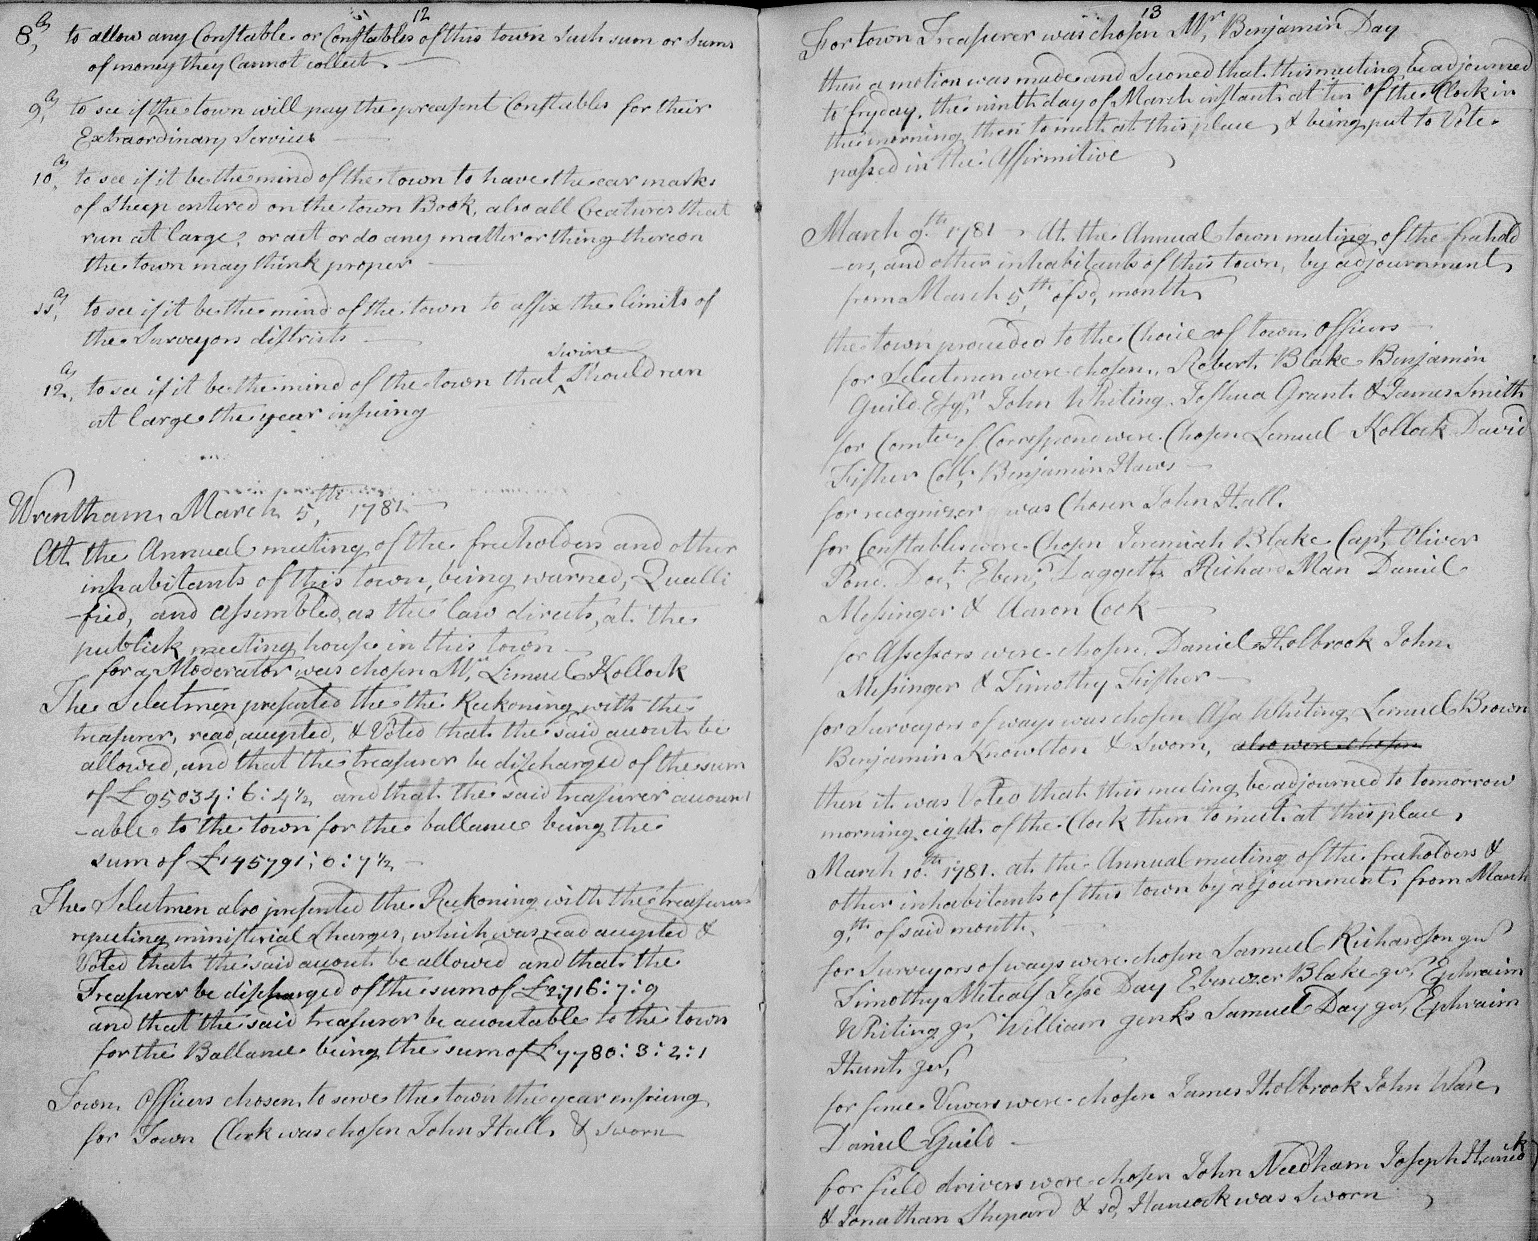 12
8ly, to allow any Constable or Constables of this town such sum or sums
of money they Cannot collect
9ly, to see if the town will pay the preasent Constables for their
Extraordinary Services
10ly, to see if it be the mind of the town to have the ear marks
of Sheep entered on the town Book, also all Creatures that
run at large, or act or do any matter or thing thereon
the town may think proper
11ly, to see if it be the mind of the town to affix the limits of
the Surveyors districts
swine
12ly, to see if it be the mind of the town that ^ Should run
at large the year insuing
Wrentham March 5th, 1781
At the Annual meeting of the freeholders and other
inhabitants of this town, being warned, Qualli
-fied, and assembled, as the law directs, at the
publick meeting house in this town
for a Moderator was chosen Mr. Lemuel Kollock
The Selectmen presented the the Reckoning with the
treasurer, read, accepted, & Voted that the said account be
allowed, and that the treasurer be discharged of the sum
of £95034:6:4½ and that the said treasurer account
-able to the town for the ballance being the
sum of £145791:0:7½
The Selectmen also presented the Reckoning with the treasurer
respecting ministerial Charges, which was read accepted &
Voted that the said account be allowed and that the
Treasurer be discharged of the sum of £2716:7:9
and that the said treasurer be accountable to the town
for the Ballance being the sum of £7780:3:2:1
Town Officers chosen to serve the town the year ensuing
for Town Clerk was chosen John Hall, & sworn
13
For town Treasurer was chosen Mr. Benjamin Day
then a motion was made and Seconed that this meeting be adjourned
to fryday, the ninth day of March instant at ten of the Clock in
the morning, then to meet at this place, & being put to Vote
passed in the Affirmitive
March 9th 1781 At the Annual town meeting of the freehold
-ers, and other inhabitants of this town, by adjournment
from March 5th of sd, month
the town proceeded to the Choice of town officers
for Selectmen were chosen, Robert Blake Benjamin
Guild Esqr, John Whiting Joshua Grant & James Smith
for Comtee of Correspone were Chosen Lemuel Kollock David
Fisher Coll, Benjamin Haws
for recognizer was Chosen John Hall
for Constables were Chosen Jeremiah Blake Capt, Oliver
Pond Doct, Ebenr Daggett Richard Man Daniel
Messinger & Aaron Cook
for Assessors were chosen, Daniel Holbrook John
Messinger & Timothy Fisher
for Surveyors of ways was chosen Asa Whiting Lemuel Brown
Benjamin Knowlton & sworn, also were chosen
then it was Voted that this meeting be adjourned to tomorrow
morning eight of the Clock then to meet at this place,
March 10th 1781. at the Annual meeting of the freeholders &
other inhabitants of this town by adjournment from March
9th of said month,
for Surveyors of ways were chosen Samuel Richardson jur
Timothy Metcalf Jesse Day Ebenezer Blake jur, Ephraim
Whiting jr, William Jenks Samuel Day jur, Ephraim
Hunt jur,
for fence Viewers were chosen James Holbrook John Ware,
Daniel Guild
for field drivers were chosen John Needham Joseph Hancock
& Jonathan Shepard & sd, Hancock was Sworn